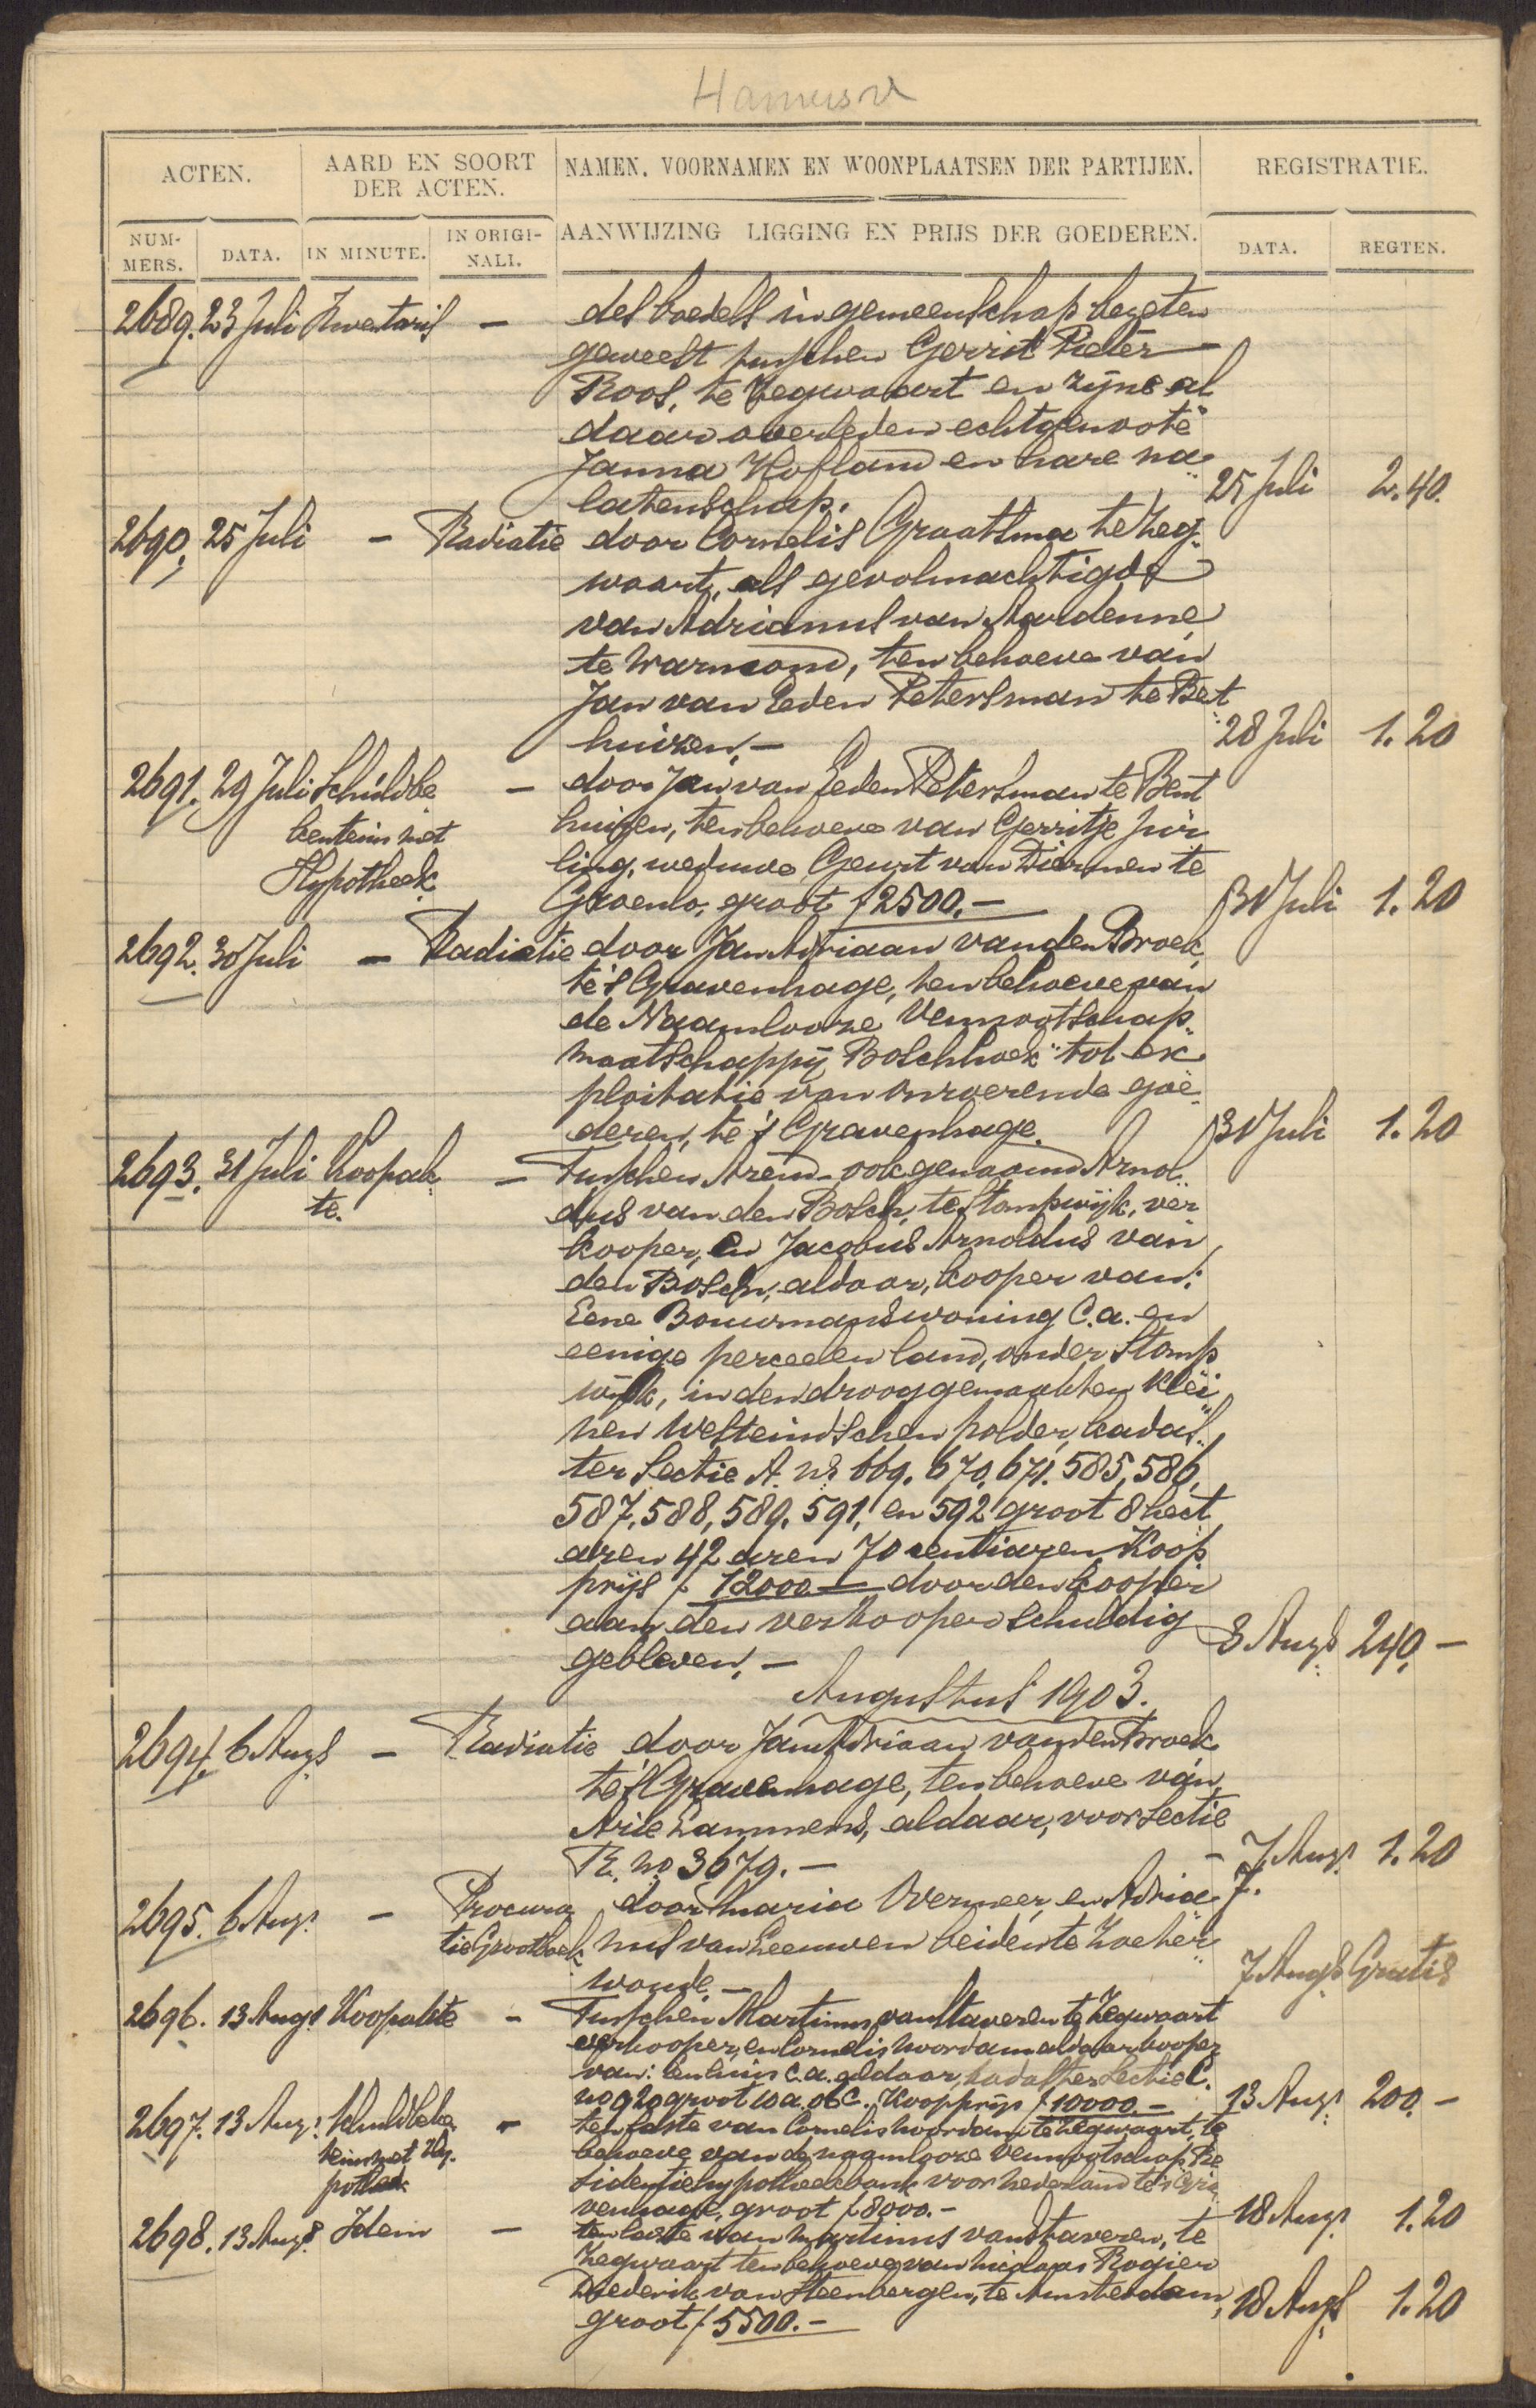 ACTEN.
AARD EN SOORT
DER ACTEN.
NAMEN. VOORNAMEN EN WOONPLAATSEN DER PARTIJEN.
REGISTRATIE.
NUM-
MERS.
DATA.
IN MINUTE.
IN ORIGI-
NALI.
AANWIJZING LIGGING EN PRIJS DER GOEDEREN.
DATA.
REGTEN.
2689. 23 Juli Inventaris — des boedels in gemeenschap bezeten
geweest tusschen Gerrit Pieter
Roos, te Zegwaart en zijne al
daar overleden echtgenoote
Janna Hofland en hare na
latenschap. 25 Juli 2.40.
2690, 25 Juli — Radiatie door Cornelis Graatsma te Zeg
waart, als gevolmachtigde
van Adrianus van Aardenne
te Warmond, ten behoeve van
Jan van Eeden Petersman te Bent
huizen. — 28 Juli 1.20
2691. 29 Juli Schuldbe — door Jan van Eeden Petersman te Bent
kentenis met huizen, ten behoeve van Gerritje
Hypotheek ling, weduwe Geurt van Diermen te
Groenlo, groot f 2500.— 31 Juli 1.20
2692. 30 Juli — Radiatie door Jan Adriaan van den Broek,
te 's Gravenhage, ten behoeve van
de Naamlooze Vennootschap
Maatschappij Boschhoek tot ex
ploitatie van onroerende goe
deren, te 's Gravenhage. 31 Juli 1.20
2693. 31 Juli Koopak — Tusschen Arend ook genaamd Arnol
te. dus van den Bosch, te Stompwijk, ver
kooper, en Jacobus Arnoldus van
den Bosch, aldaar, kooper van:
Eene Bouwmanswoning c.a. en
eenige perceelen land, onder Stomp
wijk, in den drooggemaakten Klei
nen Westeindschen polder, kadas
ter Sectie A. no 669. 670. 671. 585, 586,
587, 588, 589, 591, en 592 groot 8 hect
aren 42 aren 70 centiaren Koop
prijs f 12000.— door den kooper
aan den verkooper schuldig
gebleven. — 3 Augs 240,—
Augustus 1903.
2694. 6 Augs — Radiatie door Jan Adriaan van den Broek
te 's Gravenhage, ten behoeve van
Arie Lammens, aldaar, voor Sectie
R. no 3679. — 7 Augs 1.20
2695. 6 Augs — Procura door Maria Overmeer, en Adria
tie Grootboek nus van Leeuwen beiden te Zoeter
woude. — 7 Augs Gratis
2696. 13 Augs Koopakte — Tusschen Martinus van Staveren te Zegwaart
verkooper, en Cornelis Noordam aldaar kooper
van: een huis c.a. aldaar, kadaster Sectie C.
no 920 groot 10 a. 06 c. Koopprijs f 10000.— 13 Augs 200.—
2697. 13 Augs Schuldbeke — ten laste van Cornelis Noordam te Zegwaart, te
tenis met Hy behoeve van de naamlooze vennootschap Re
potheek sidentie hypotheekbank voor Nederland te 's Gra
venhage, groot f 8000.— 18 Augs 1.20
2698. 13 Augs Idem — ten laste van Martinus van Staveren, te
Zegwaart ten behoeve van Nicolaas Rogier
Diederik van Steenbergen, te Amsterdam,
groot f 5500.— 18 Augs 1.20